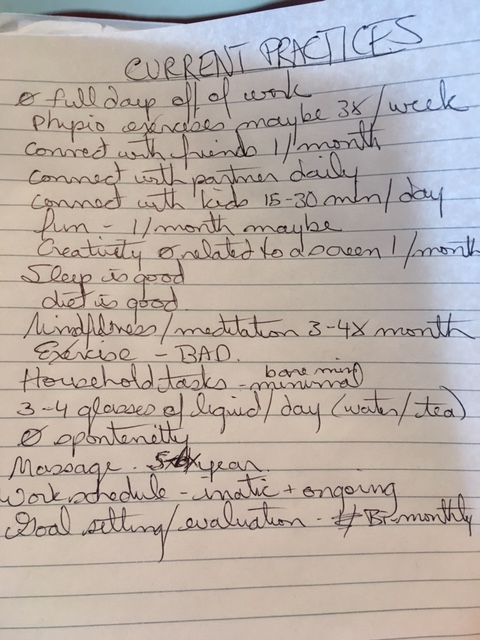 CURRENT PRACTICES
Ø full days off of work
Physio exercises maybe 3x/week
Connect with friends 1/month
Connect with partner daily
Connect with kids 15-30 min/day
fun - 1/month maybe
Creativity Ø related to a screen 1/month
Sleep is good
diet is good
Mindfulness/meditation 3-4x month
Exercise - BAD.
Household tasks - bare min
minimal
3-4 glasses of liquid/day (water/tea)
Ø sponteneity
Massage. year.
Work schedule - + ongoing
Goal setting/evaluation - Bi-monthly